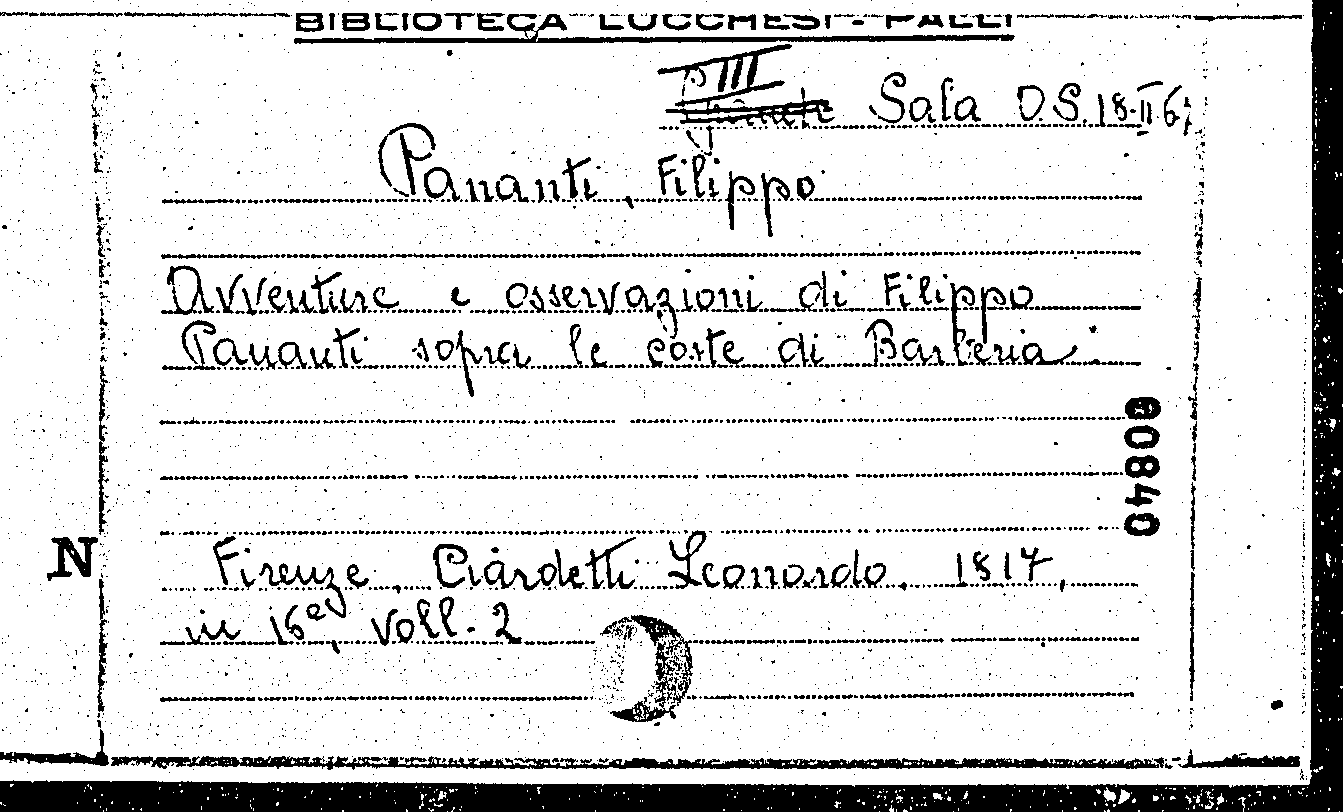 BIBLIOTECA LUCCHESI - PALLI
P III
Sala O.S. 18.II 6
Pananti, Filippo
Avventure e osservazioni di Filippo
Pananti sopra le coste di Barberia.
00840
N
Firenze, Ciardetti Leonardo, 1817,
in 16°, Voll. 2